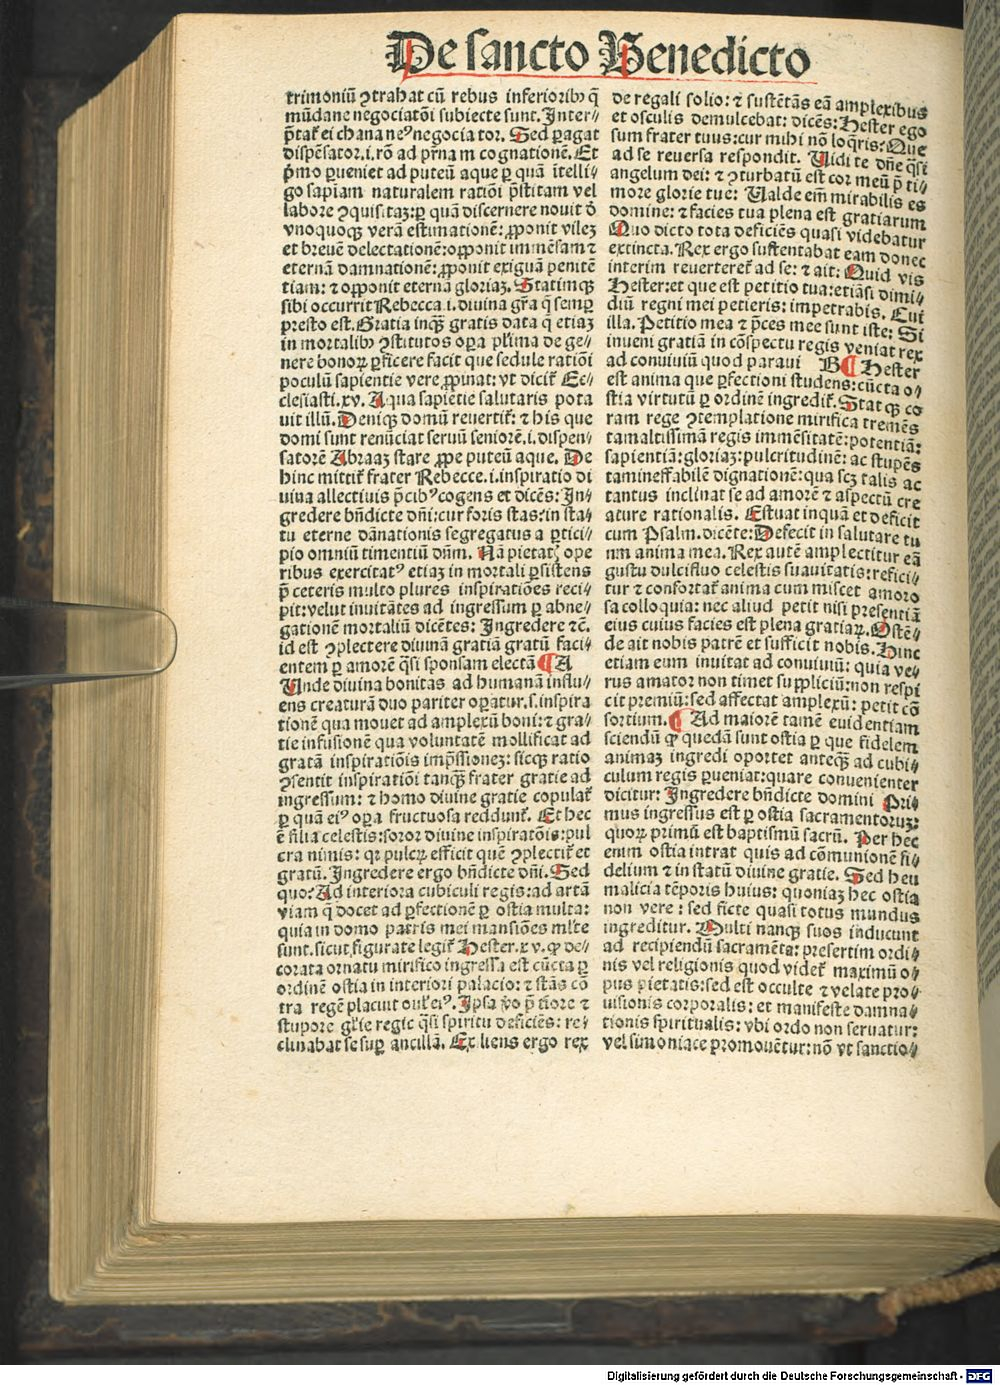 De sancto Benedicto
trimoniū ꝯtrahat cū rebus inferioribꝫ q̄
mūdane negociatōi subiecte sunt. Inter⸗
p̄tat᷑ ei chananeꝰ negociator. Sed ꝑagat
dispēsator .i. rō ad pr̄nam cognationē. Et
p̄mo ꝑueniet ad puteū aque ꝑ quā ītelli⸗
go sapiam naturalem ratiōi p̄stitam vel
labore ꝯquisitaꝫ: ꝑ quā discernere nouit ꝺ̄
vnoquoqꝫ verā estimationē: ꝓponit vileꝫ
et breuē delectationē: opponit immēsam ⁊
eternā damnationē: ꝓponit exiguā penitē
tiam: ⁊ opponit eternā gloriaꝫ. Statimqꝫ
sibi occurrit Rebecca .i. diuina gr̄a q̄ semꝑ
presto est. Gratia inqꝫ gratis data q̄ etiaꝫ
in mortalibꝫ ꝯstitutos oꝑa pl̄ima de ge⸗
nere bonoꝝ ꝑficere facit que sedule ratiōi
poculū sapientie vere ꝓpinat: vt dicit᷑ Ec⸗
clesiasti. xv. Aqua sapiētie salutaris pota
uit illū. Deniqꝫ domū reuertit᷑: ⁊ his que
domi sunt renūciat seruū seniorē .i. dispen⸗
satorē Abraaꝫ stare ꝓpe puteū aque. De
hinc mittit᷑ frater Rebecce .i. inspiratio di
uina allectiuis p̄cibꝰ cogens et dicēs: In⸗
gredere bn̄dicte dn̄i: cur foris stas: in sta⸗
tu eterne dānationis segregatus a ꝑtici⸗
pio omniū timentiū dn̄m. Nā pietatꝭ ope
ribus exercitatꝰ etiaꝫ in mortali ꝑsistens
p̄ ceteris multo plures inspiratiōes reci⸗
pit: velut inuitātes ad ingressum ꝑ abne⸗
gationē mortaliū dicētes: Ingredere ⁊c̄.
id est ꝯplectere diuinā gratiā gratū faci⸗
entem ꝑ amorē q̄si sponsam electā ¶ A
Vnde diuina bonitas ad humanā influ⸗
ens creaturā duo pariter oꝑatur .s. inspira
tionē qua mouet ad amplexū boni: ⁊ gra⸗
tie infusionē qua voluntatē mollificat ad
gratā inspiratiōis imp̄ssionēꝫ: sicqꝫ ratio
ꝯsentit inspiratiōi tanqꝫ frater gratie ad
ingressum: ⁊ homo diuine gratie copulat᷑
ꝑ quā eiꝰ oꝑa fructuosa reddunt᷑. Et hec
ē filia celestis: soror diuine inspiratōis: pul
cra nimis: qꝛ pulcꝝ efficit quē ꝯplectit᷑ et
gratū. Ingredere ergo bn̄dicte dn̄i. Sed
quo: Ad interiora cubiculi regis: ad artā
viam q̄ docet ad ꝑfectionē ꝑ ostia multa:
quia in domo patris mei mansiōes ml̄te
sunt. sicut figurate legit᷑ Hester. xv. ꝙ de⸗
corata ornatu mirifico ingressa est cūcta ꝑ
ordinē ostia in interiori palacio: ⁊ stās cō
tra regē placuit oul̄ eiꝰ. Ipsa v̄o p̄ tiore ⁊
stupore gl̄ie regie q̄si spiritu deficiēs: re⸗
clinabat se suꝑ ancillā. Exiliens ergo rex
de regali solio: ⁊ sustētās eā amplexibus
et osculis demulcebat: dicēs: Hester ego
sum frater tuus: cur mihi nō loq̄ris: Que
ad se reuersa respondit. Vidi te dn̄e q̄si
angelum dei: ⁊ ꝯturbatū est cor meū p̄ ti⸗
more glorie tue: Valde em̄ mirabilis es
domine: ⁊ facies tua plena est gratiarum
Quo dicto tota deficiēs quasi videbatur
extincta. Rex ergo sustentabat eam donec
interim reuerteret᷑ ad se: ⁊ ait: Quid vis
Hester: et que est petitio tua: etiāsi dimi⸗
diū regni mei petieris: impetrabis. Cui
illa. Petitio mea ⁊ p̄ces mee sunt iste: Si
inueni gratiā in cōspectu regis veniat rex
ad conuiuiū quod paraui B ¶ Hester
est anima que ꝑfectioni studens: cūcta o⸗
stia virtutū ꝑ ordinē ingredit᷑. Statqꝫ co
ram rege ꝯtemplatione mirifica tremēs
tamaltissimā regis immēsitatē: potentiā:
sapientiā: gloriaꝫ: pulcritudinē: ac stupēs
tamineffabilē dignationē: qua scꝫ talis ac
tantus inclinat se ad amorē ⁊ aspectū cre
ature rationalis. Estuat inquā et deficit
cum Psalm. dicēte: Defecit in salutare tu
um anima mea. Rex autē amplectitur eā
gustu dulcifluo celestis suauitatis: refici⸗
tur ⁊ confortat᷑ anima cum miscet amoro
sa colloquia: nec aliud petit nisi presentiā
eius cuius facies est plena gratiaꝝ. Ostē⸗
de ait nobis patrē et sufficit nobis. Hinc
etiam eum inuitat ad conuiuiū: quia ve⸗
rus amator non timet suppliciū: non respi
cit premiū: sed affectat amplexū: petit cō
sortium. ¶ Ad maiorē tamē euidentiam
sciendū ꝙ quedā sunt ostia ꝑ que fidelem
animaꝫ ingredi oportet anteqꝫ ad cubi⸗
culum regis ꝑueniat: quare conuenienter
dicitur: Ingredere bn̄dicte domini Pri⸗
mus ingressus est ꝑ ostia sacramentoruꝫ:
quoꝝ primū est baptismū sacrū. Per hec
enim ostia intrat quis ad cōmunionē fi⸗
delium ⁊ in statū diuine gratie. Sed heu
malicia tēporis huius: quoniaꝫ hec ostia
non vere: sed ficte quasi totus mundus
ingreditur. Multi nanqꝫ suos inducunt
ad recipiendū sacramēta: presertim ordi⸗
nis vel religionis quod videt᷑ maximū o⸗
pus pietatis: sed est occulte ⁊ velate pro⸗
uisionis corporalis: et manifeste damna⸗
tionis spiritualis: vbi ordo non seruatur:
vel simoniace promouētur: nō vt sanctio⸗
Digitalisierung gefördert durch die Deutsche Forschungsgemeinschaft - DFG